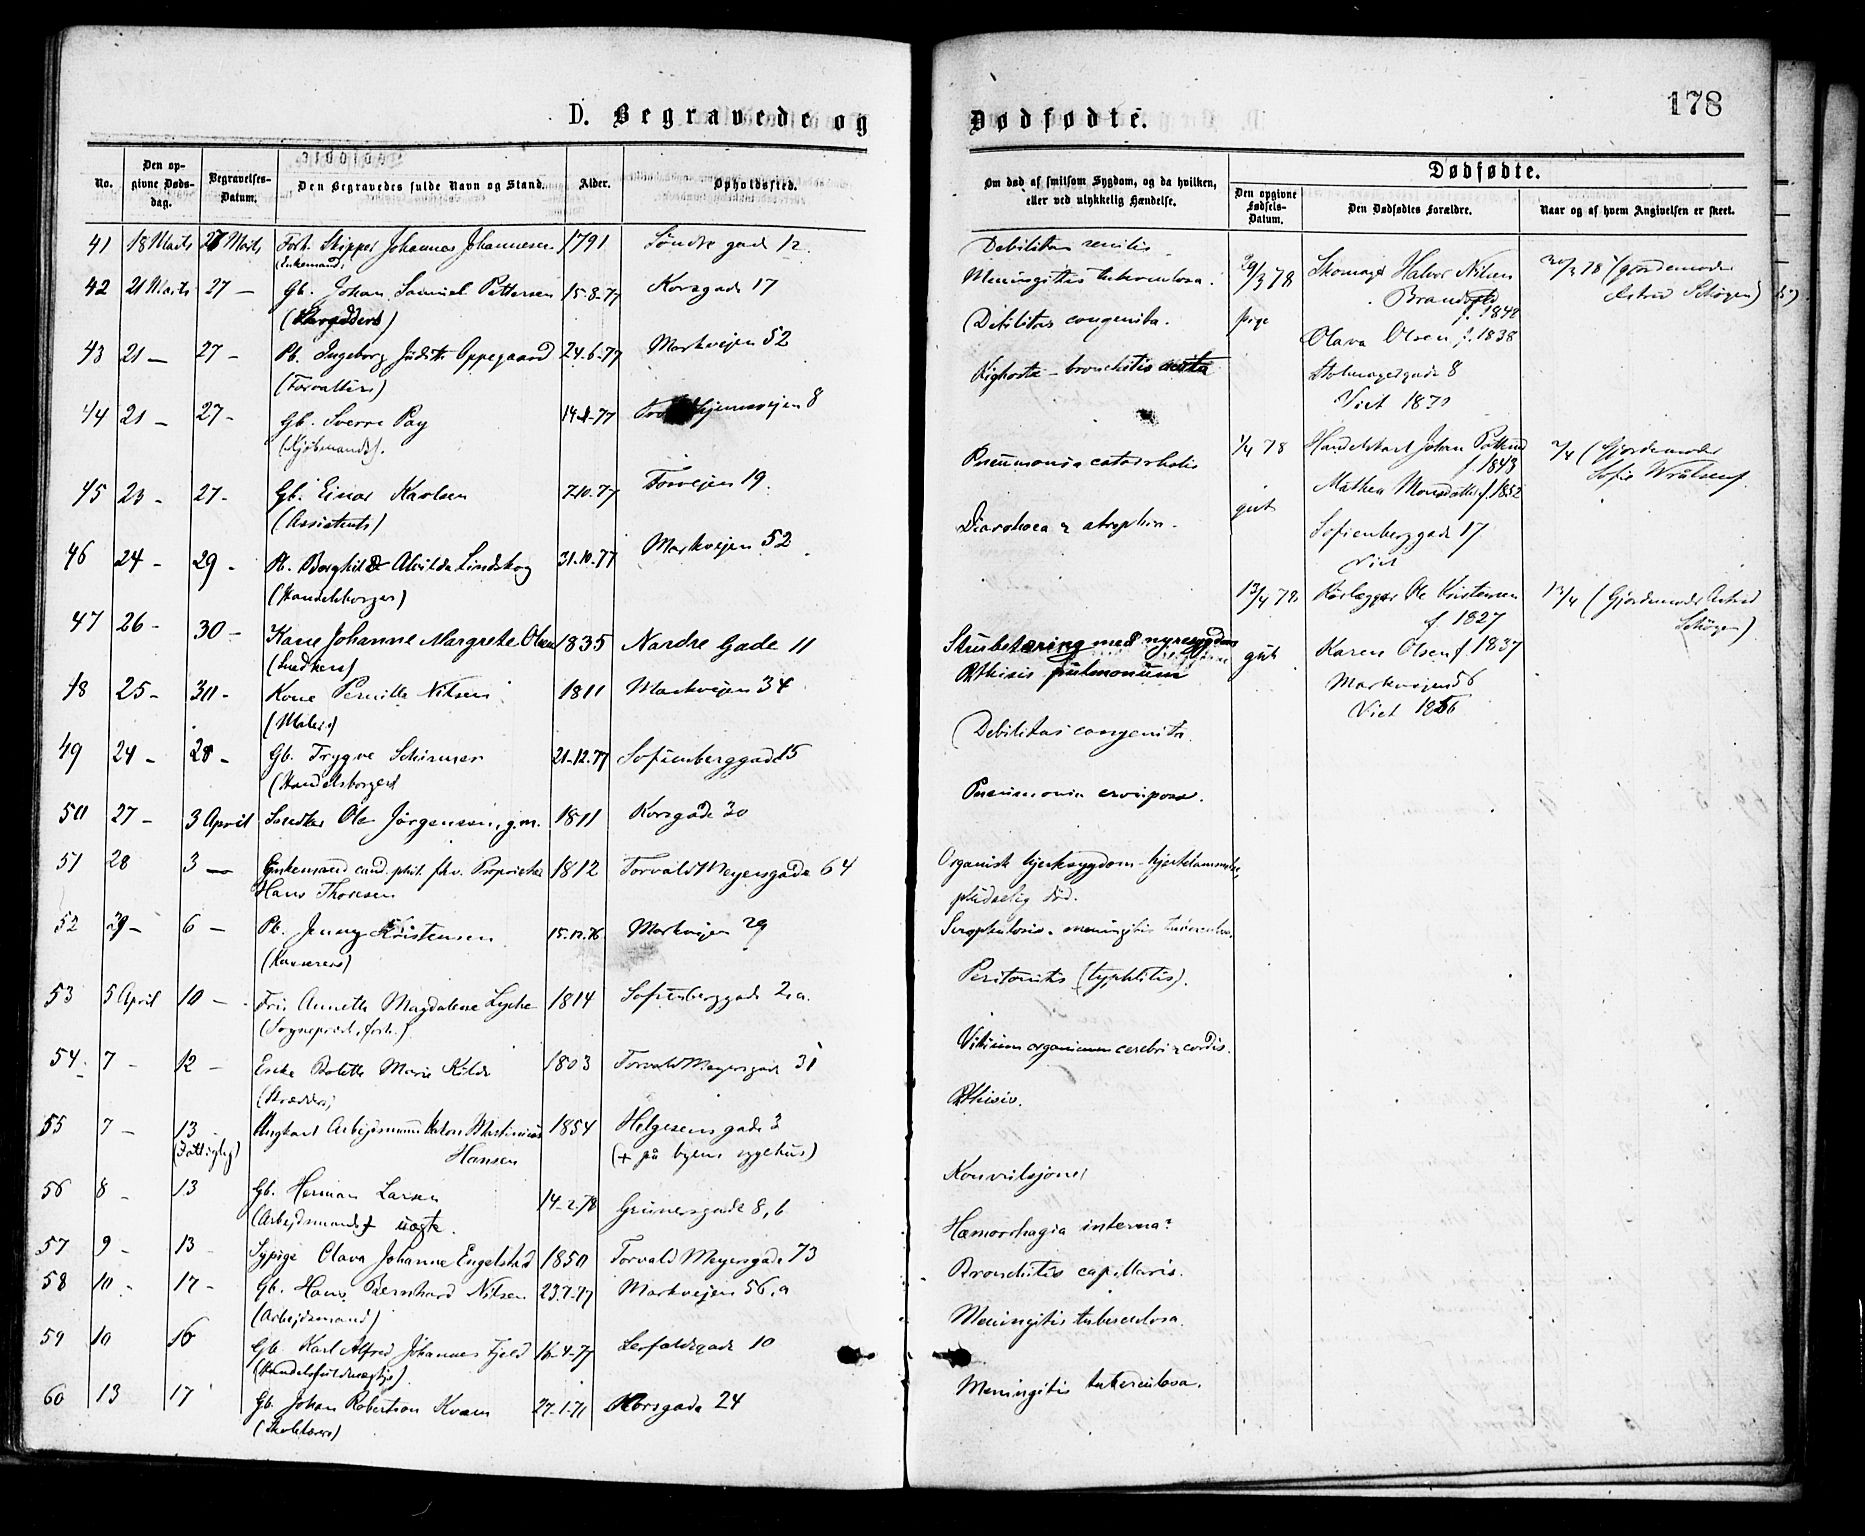 178
D. Begravede og Dødfødte.
No. Den opgivne Dødsdag. Begravelses-Datum. Den Begravedes fulde Navn og Stand. Alder. Opholdssted.
Om død af smitsom Sygdom, og da hvilken, eller ved ulykkelig Hændelse.
Dødfødte.
Den opgivne Fødsels-Datum. Den Dødfødtes Forældre. Naar og af hvem Angivelsen er skeet.
41 18 Marts 27 Marts Forh. Skipper Johannes Johannesen 1791 Søndre gade 12
(Enkemand)
42 21 Marts 27 — Gb. Johan Samuel Pettersen 15-8-77 Korsgade 17
43 21 — 27 — Pb. Ingeborg Judith Oppegaard 24-6-77 Markvejen 52
(Forvalters)
44 21 — 27 — Gb. Sverre Pay 77 8
(Kjøbmands).
45 23 — 27 — Gb. Einar Karlsen 7-10-77 Torvejen 19
(Assistents)
46 24 — 29 — Pb. Borghild Alvilda Lindskog 31-10-77 Markvejen 52
(Handelsborger)
47 26 — 30 — Kone Johanne Margrete Olsen 1835 Nordre Gade 11
(Snedkers)
48 25 — 30 — Kone Pernille Nilsen 1811 Markvejen 34
(Malers)
49 24 — 28 — Gb. Trygve Schirmer 21-12-77 Sofienberggade 15
(Handelsborgers)
50 27 — 3 April Snedker Ole Jørgensen, g.m. 1811 Korsgade 30
51 28 3 — Enkemand cand. phil. fhv. Proprietær 1812 Torvald Meyersgade 64
Hans Thoresen
52 29 — 6 — Pb. Jenny Kristensen 15-12-76 Markvejen 29
53 5 April 10 — Frk. Annette Magdalene Lyche 1814 Sofienberggade 2.a.
(Sognepræst, forh.)
54 7 — 12 — Enke Bolette Marie Kilde 1803 Torvald Meyersgade 31
(Skrædders)
55 7 — 13 Ungkarl Arbejdsmand Anton Martinius 1854 Helgesens gade 3
(Fattiglig) Hansen (+ på byens sygehus)
56 8 — 13 Gb. Herman Larsen 14-2-78 Grünersgade 8, b
(Arbejdsmands) uægte.
57 9 — 13 Sypige Olava Johanne Engelstad 1850 Torvald Meyersgade 73
58 10 — 17 — Gb. Hans Bernhard Nilsen 23-7-77 Markvejen 56, a
(Arbejdsmand)
59 10 16 Gb. Karl Alfred Johannes Fjeld 16-4-77 Lerfaldsgade 10
(Handelsfuldmægtigs).
60 13 17 Gb. Johan Robertson Kvam 27-1-71 Korsgade 24
(Skolelærers)
Debilitas senilis
Meningitis tuberculosa.
Debilitas congenita.
Kighoste — bronchitis
Pneumonia catarrhalis
Diarrhoea & atrophia.
Strubetæring med nyresygdom
Phthisis pulmonum
Debilitas congenita.
Pneumonia crouposa.
Organisk hjertesygdom — hjertelammelse,
pludselig død.
Scrophulosis. meningitis tuberculosa.
Peritonitis (typhlitis).
Vitium organicum cerebri & cordis.
Phthisis.
Konvulsjoner
Hæmorrhagia interna?
Bronchitis capillaris.
Meningitis tuberculosa.
Meningitis tuberculosa.
29/3 78 Skomager Halvor Nilsen 30/3 78 (gjordemoder
Brandstad Astrid Schøgen)
f. 1842
pige Olava Olsen f. 1838
8
Viet 1871
1/4 78 Handelskarl Johan 2/4 (Gjordemoder
f. 1843 Sofie
Mathea Monsdatter f. 1852
gut Sofienberggade 17
Viet
13/4 78 Rørlægger Ole Kristensen 13/4 (Gjordemoder Astrid
f 1827 Schøgen)
gut Karen Olsen f. 1837
Markvejen 56
Viet 1866